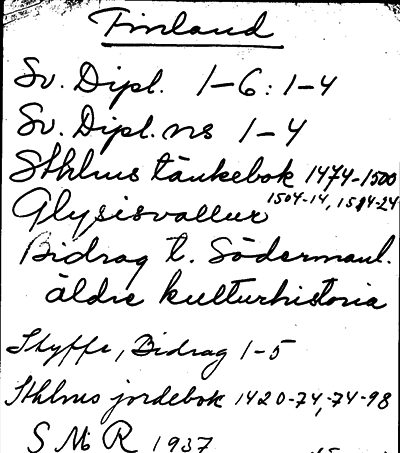 Finland
Sv. Dipl. 1-6: 1-4
Sv. Dipl. ns 1-4
Sthlms tänkebok 1474-1500
1504-14, 1514-24
Glysisvallur
Bidrag t. Södermanl.
äldre kulturhistoria
Styffe, Bidrag 1-5
Sthlms jordebok 1420-74,-74-98
SMR 1937